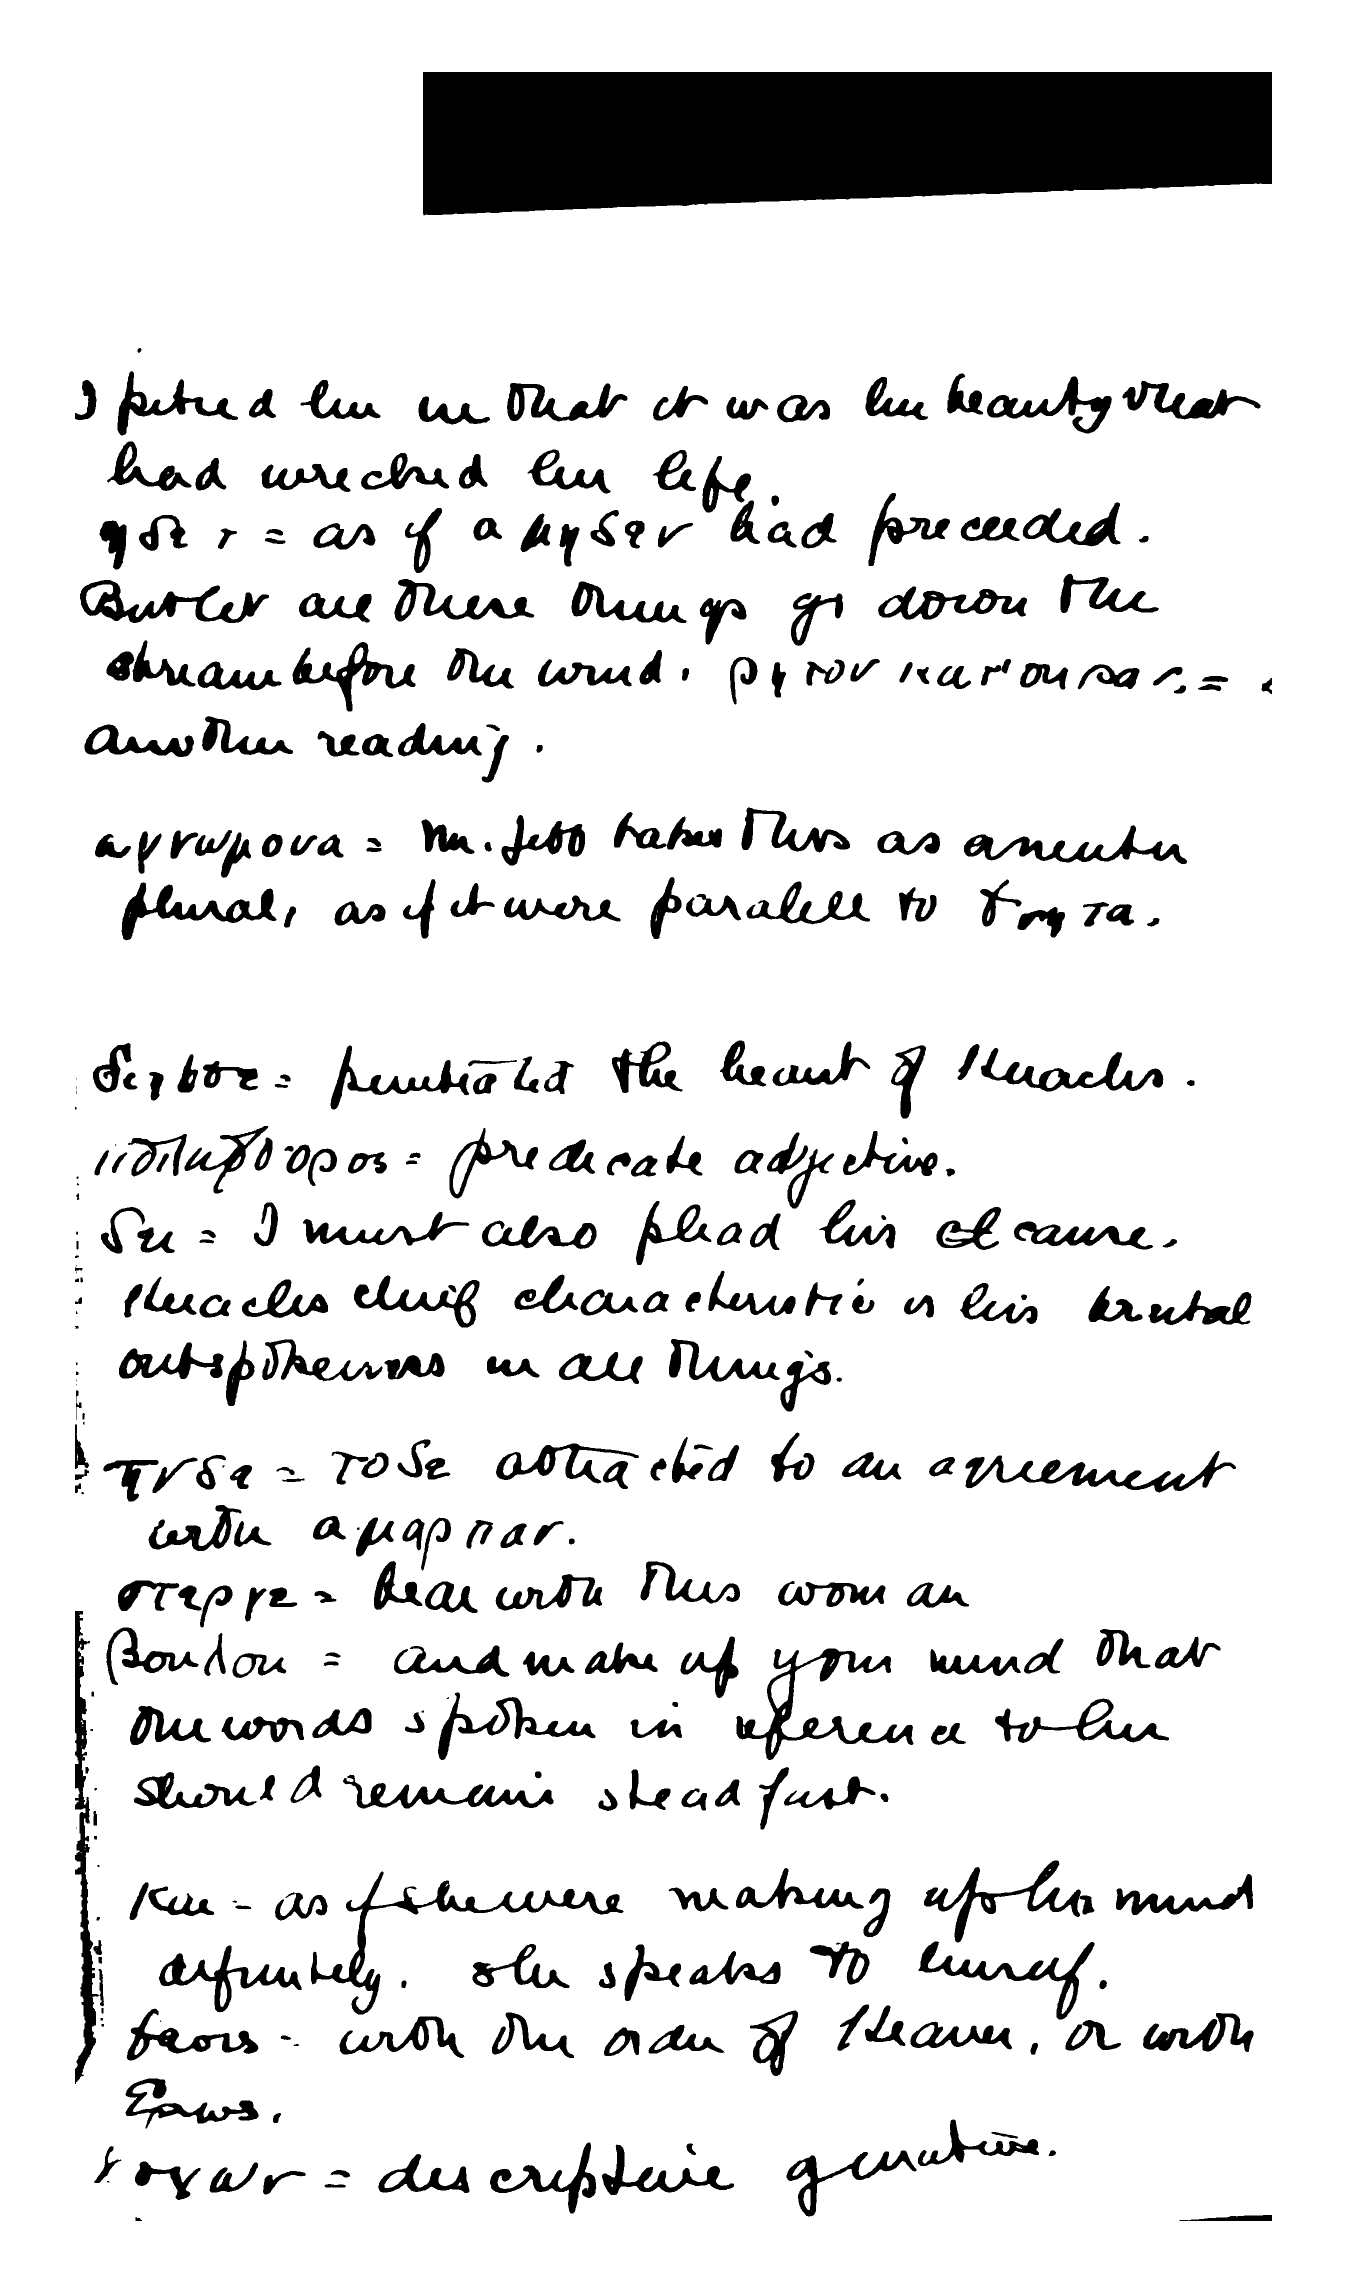 I pitied her in that it was her beauty that
had wrecked her life.
ηδε ν = as if a μηδεν had preceeded.
But let all these things go down the
stream before the wind. ρητον κατ' ουρον. =
another reading.
αγνωμονα = Mr. Jebb takes this as a neuter
plural, as if it were paralell to θνητα.
διηλθε = penetrated the heart of Heracles.
= predicate adjective.
δει = I must also plead his cause.
Heracles chief characteristic is his brutal
outspokenness in all things.
τηνδε = τοδε attracted to an agreement
with αμαρτιαν.
στεργε = bear with this woman
βουλου = and make up your mind that
the words spoken in reference to her
should remain steadfast.
και - as if she were making up her mind
definitely. She speaks to herself.
θεοις - with the order of Heaven, or with
Ερως.
λογων = descriptive genative.